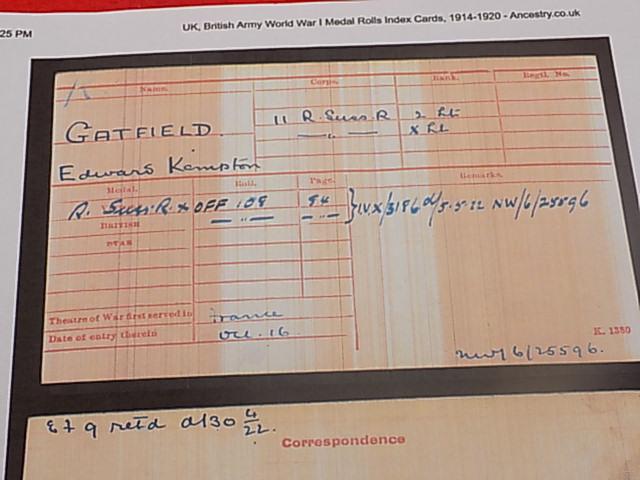 25 PM
UK, British Army World War I Medal Rolls Index Cards, 1914-1920 - Ancestry.co.uk
Name. Corps. Rank. Regtl. No.
GATFIELD. 11 R. Suss. R 2 Lt
— " — X Lt
Edward Kempton
Medal. Roll. Page. Remarks.
R. Suss. R X OFF 108 84 } IV.X/3186 d/5.5.22 NW/6/25596
BRITISH — " — — " —
STAR
Theatre of War first served in France
Date of entry therein Oct. 16
K. 1380
NW/6/25596.
E f 9 retd d/30 4/22.
Correspondence